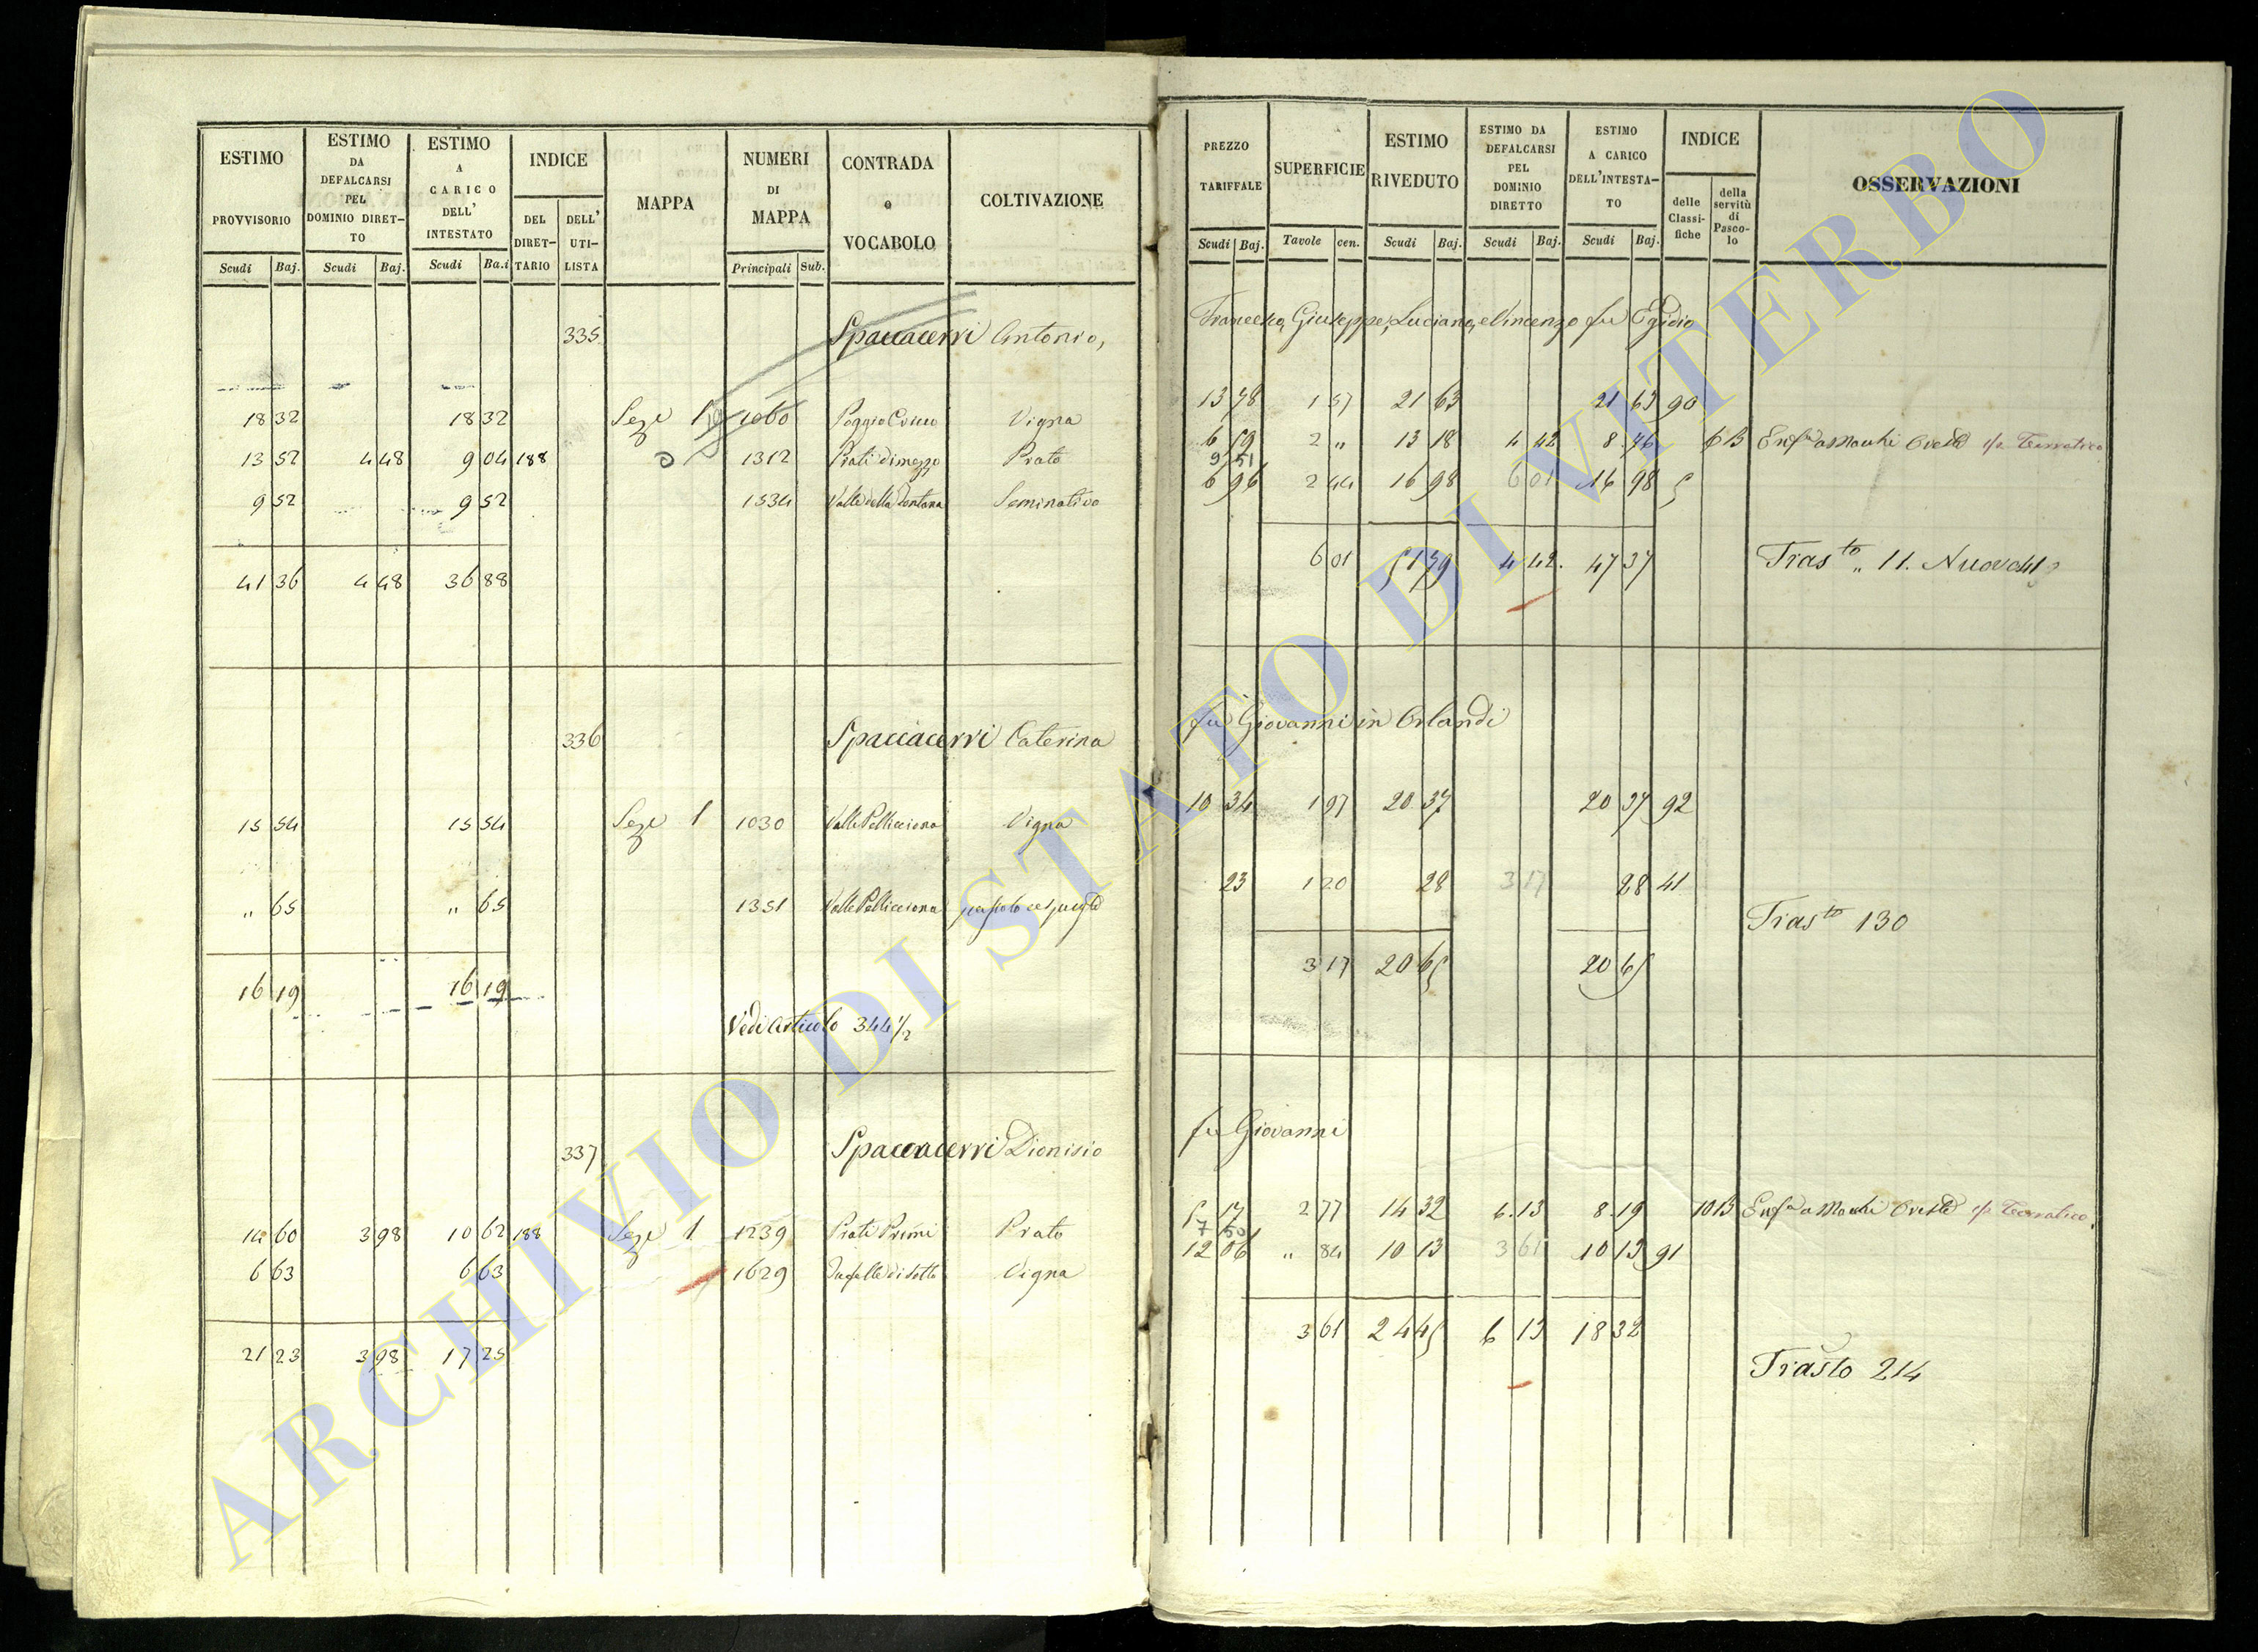 ESTIMO PROVVISORIO
ESTIMO DA DEFALCARSI PEL DOMINIO DIRETTO
ESTIMO A CARICO DELL' INTESTATO
INDICE
DEL DIRETTARIO
DELL' UTILISTA
MAPPA
NUMERI DI MAPPA
CONTRADA e VOCABOLO
COLTIVAZIONE
Scudi Baj. Scudi Baj. Scudi Ba.i Principali Sub.
335 Spaccacerri Antonio,
18 32 18 32 Seze 1 1060 Vigna
13 52 4 48 9 04 188 1312 Prati di mezzo Prato
9 52 9 52 1534 Valle della Fontana Seminativo
41 36 4 48 36 88
336 Spaccacerri Caterina
15 54 15 54 Seze 1 1030 Valle Pellicciona Vigna
" 65 " 65 1351 Valle Pellicciona
16 19 16 19
Vedi Articolo 344 1/2
337 Spaccacerri Dionisio
14 60 3 98 10 62 188 Seze 1 1239 Prati Primi Prato
6 63 6 63 1629 Vigna
21 23 3 98 17 25
PREZZO TARIFFALE
SUPERFICIE
ESTIMO RIVEDUTO
ESTIMO DA DEFALCARSI PEL DOMINIO DIRETTO
ESTIMO A CARICO DELL'INTESTATO
INDICE
delle Classifiche
della servitù di Pascolo
OSSERVAZIONI
Scudi Baj. Tavole cen. Scudi Baj. Scudi Baj. Scudi Baj.
Francesco, Giuseppe, Luciano, e Vincenzo fu Egidio
13 78 1 57 21 63 21 63 90
6 59 2 " 13 18 4 42 8.76 6 B
9 51
6 96 2 44 16 98 6 01 16 98 5
6 01 51 79 4 42. 47 37
Trasto " 11. Nuovo
fu Giovanni in Orlandi
10 34 1 97 20 37 20 37 92
23 1 20 28 3 17 28 41
Trasto 130
3 17 20 65 20 65
fu Giovanni
5 17 2 77 14 32 6.13 8.19 10 B
7 50
12 06 " 84 10 13 3 61 10 13 91
3 61 24 45 6 13 18 32
Trasto 214
ARCHIVIO DI STATO DI VITERBO